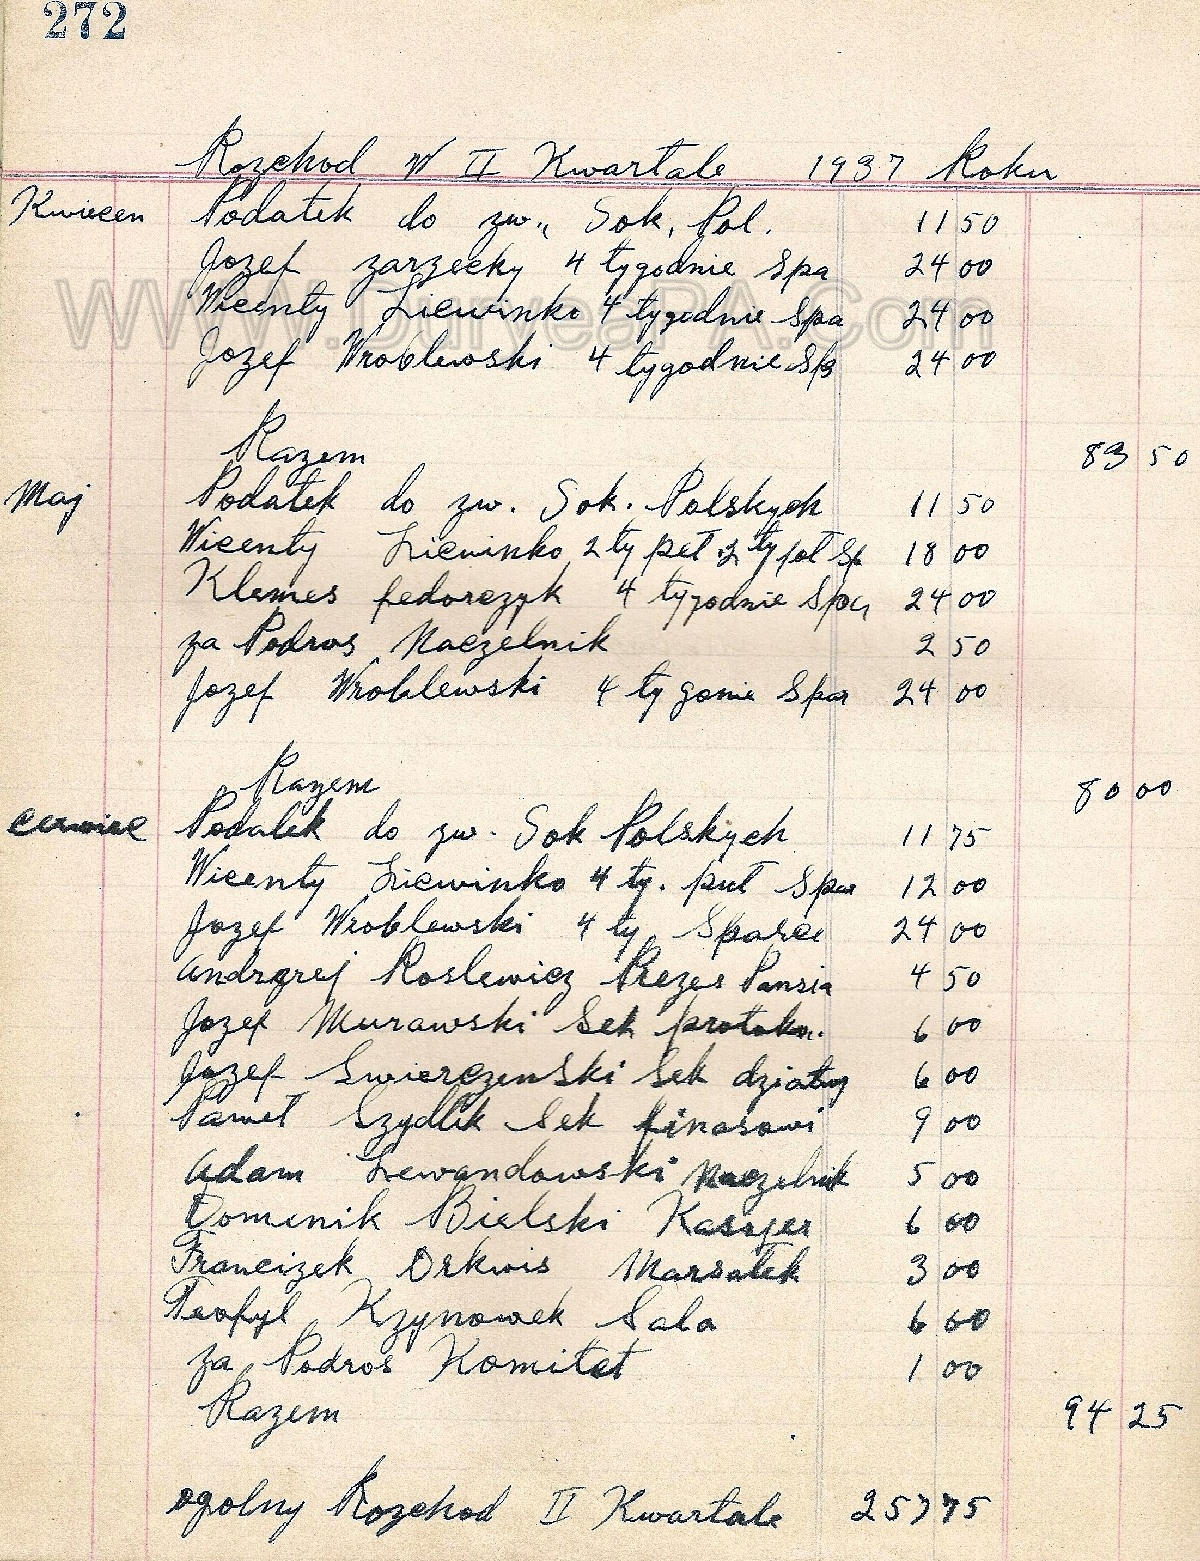 272
Rozchod W II Kwartale 1937 Roku
Kwiecen Podatek do zw., Sok, Pol. 11 50
Jozef zarzecky 4 tygodnie Spa 24 00
WWW.DuryeaPA.Com
Wicenty Liewinko 4 tygodnie Spa 24 00
Jozef Wroblewski 4 tygodnie Spa 24 00
Razem 83 50
Maj Podatek do zw. Sok. Polskych 11 50
Wicenty Liewinko 2 ty peł 2 ty poł Sp 18 00
Klemes fedorczyk 4 tygodnie Spa 24 00
za Podros Naczelnik 2 50
Jozef Wroblewski 4 ty gonie Spar 24 00
Razem 80 00
cerwiec Podatek do zw. Sok Polskych 11 75
Wicenty Liewinko 4 ty. puł Spar 12 00
Jozef Wroblewski 4 ty Sparce 24 00
Andrzrej Roslewicz Prezes Pansia 4 50
Jozef Murawski Sek protoko. 6 00
Jozef Swierczenski Sek działny 6 00
Paweł Szydlik Sek finasowi 9 00
Adam Lewandowski Naczelnik 5 00
Domenik Bielski Kasyer 6 00
Francizek Orkwis Marsałek 3 00
Teofyl Kzynowek Sala 6 00
za Podros Komitet 1 00
Razem 94 25
ogolny Rozchod II Kwartale 257 75